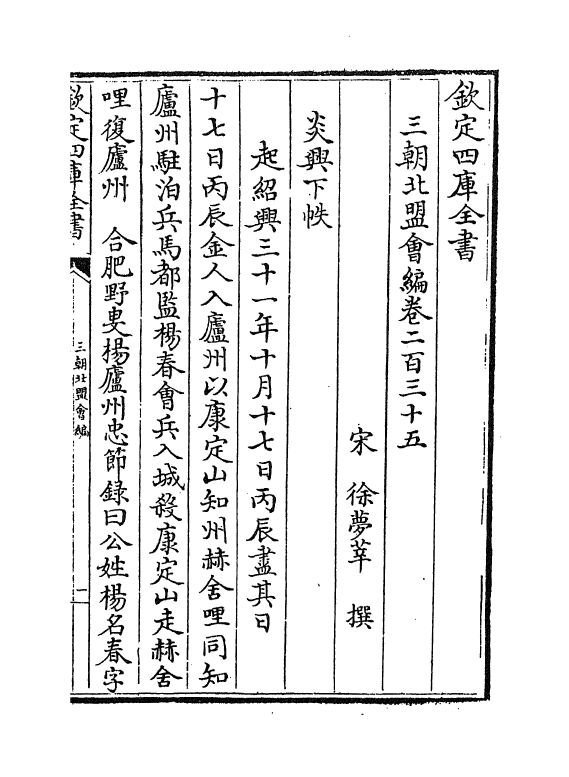 欽定四庫全書
三朝北盟會編卷二百三十五
宋 徐夢莘 撰
炎興下帙
起紹興三十一年十月十七日丙辰盡其日
十七日丙辰金人入廬州以康定山知州赫舍哩同知
廬州駐泊兵馬都監楊春會兵入城殺康定山走赫舍
哩復廬州 合肥野叟楊廬州忠節録曰公姓楊名春字
欽定四庫全書
三朝北盟會編
一